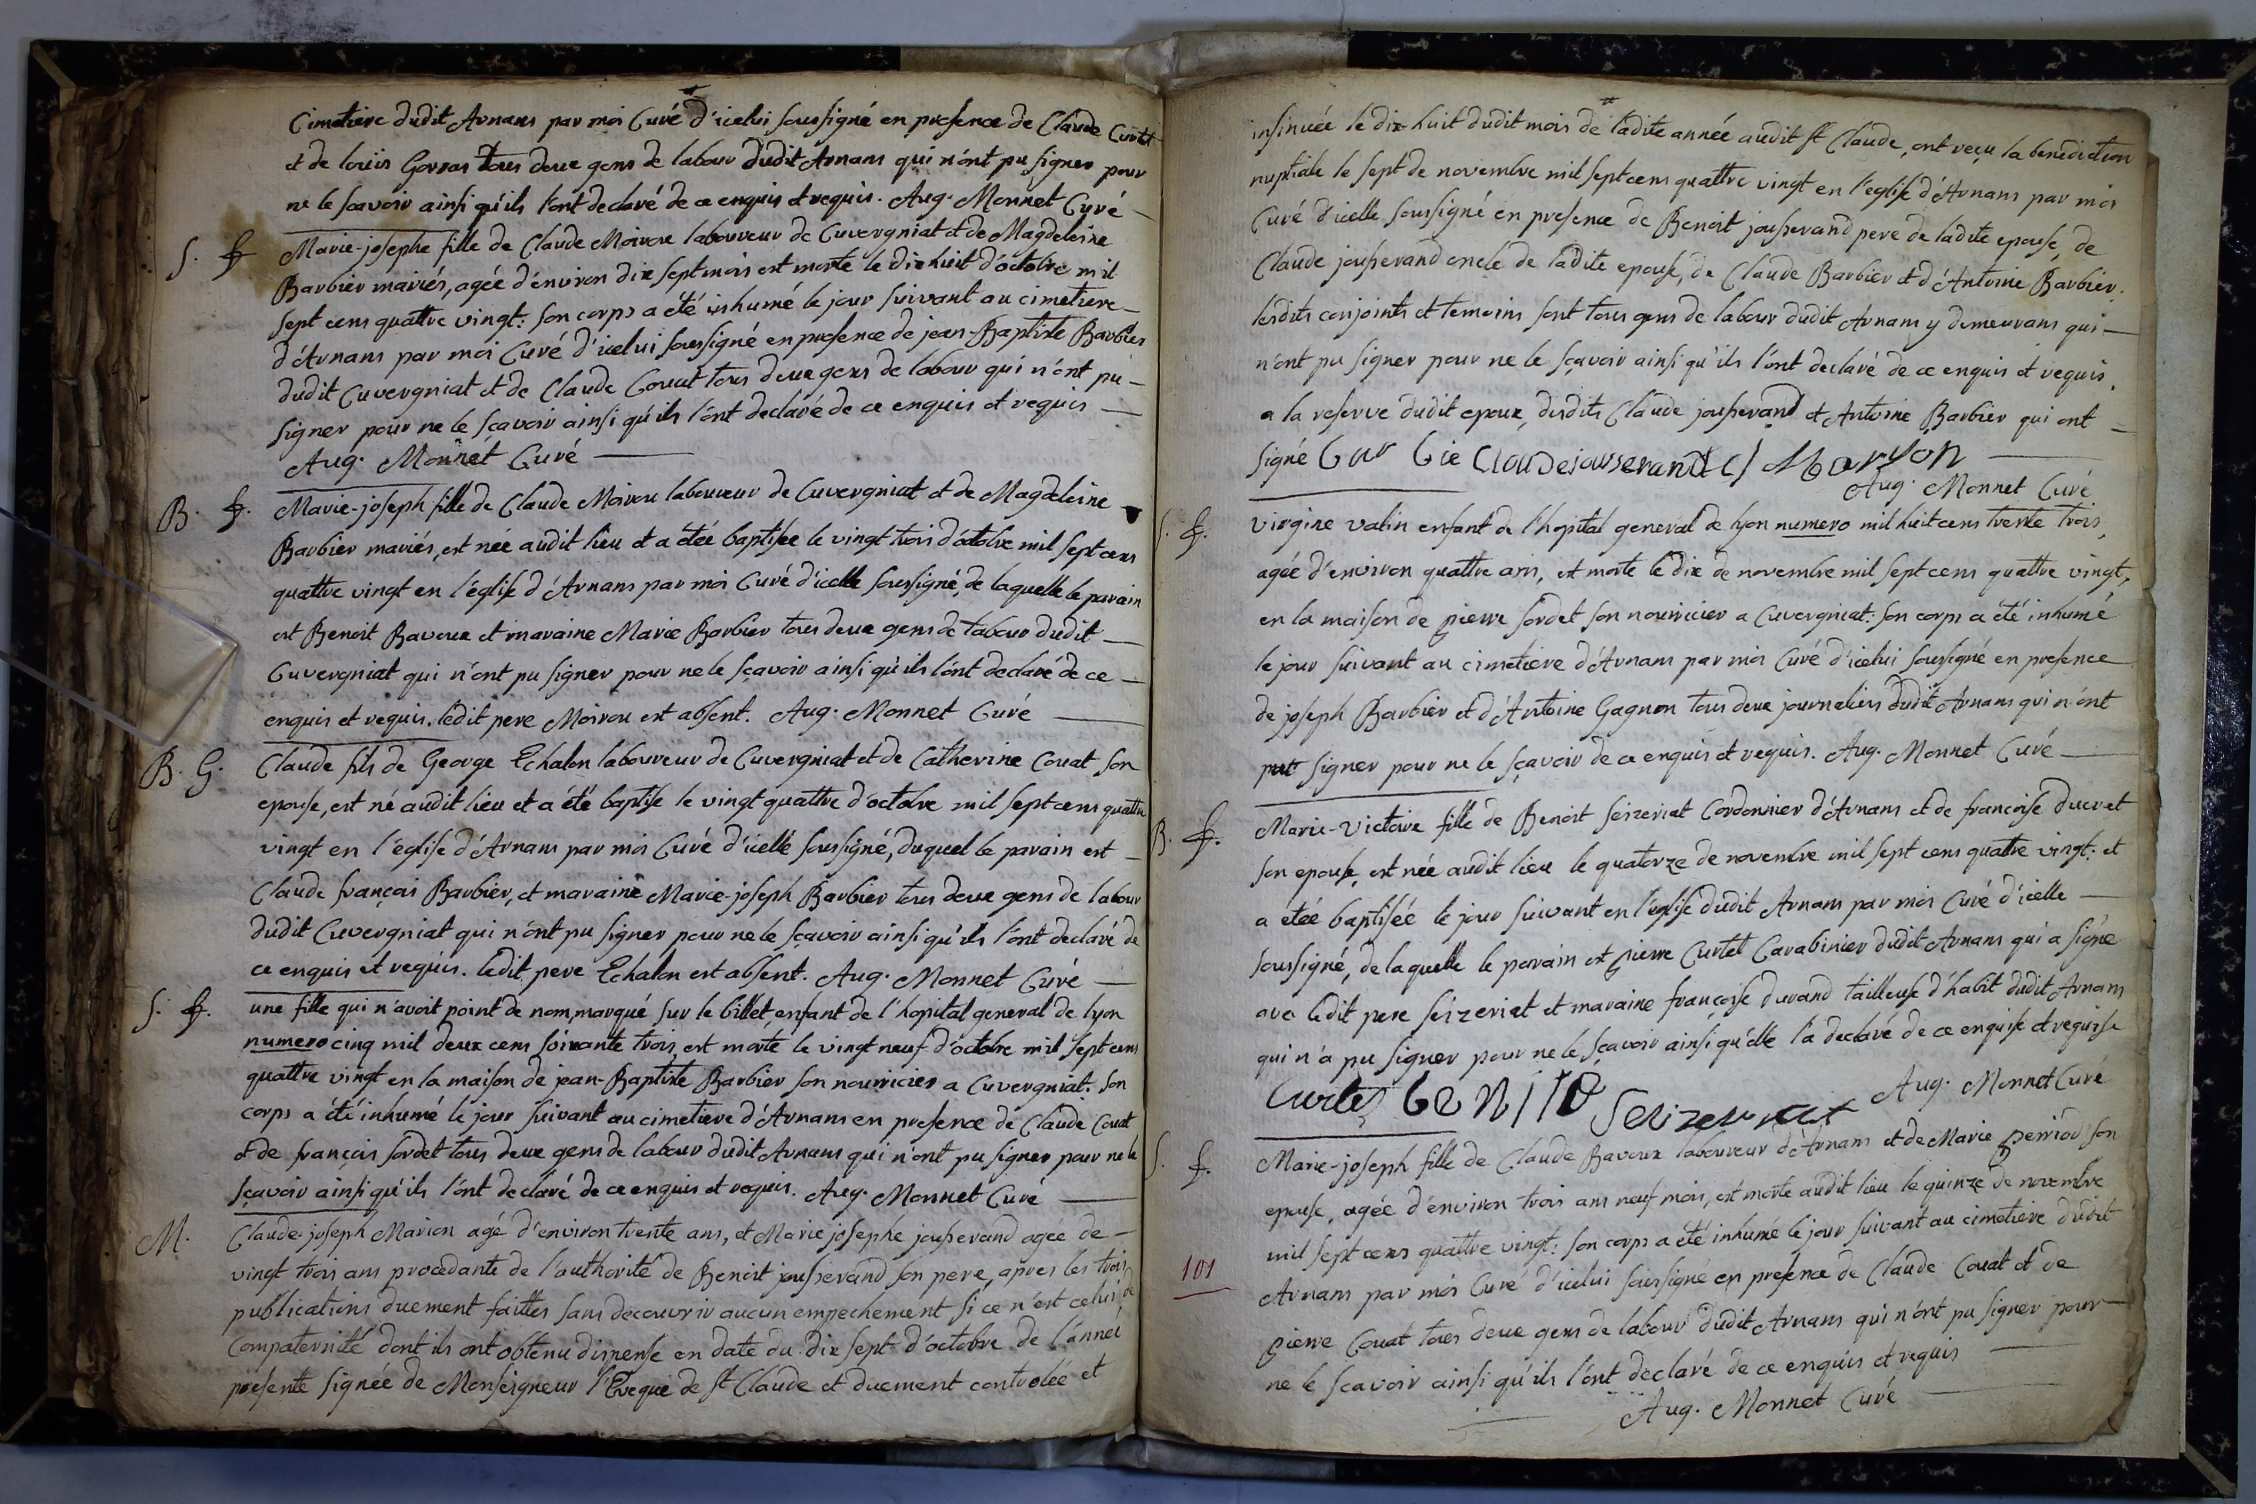 Cimetiere dudit Arnans par moi Curé d'icelui soussigné en presence de Claude Curtet
et de loüis Gorras tous deux gens de labour dudit Arnans qui n'ónt pu signer pour
ne le sçavoir ainsi qu'ils l'ont declaré de ce enquis et requis. Aug. Monnet Curé
S. f. Marie-josephe fille de Claude Moiroux laboureur de Cuvergniat et de Magdeleine
Barbier mariés, agée d'environ dix sept mois est morte le dix huit d'octobre mil
sept cens quattre vingt: son corps a été inhumé le jour suivant au cimetiere
d'Arnans par moi Curé d'icelui soussigné en presence de jean-Baptiste Barbier
dudit Cuvergniat et de Claude Couat tous deux gens de labour qui n'ónt pu
signer pour ne le sçavoir ainsi qu'ils l'ónt declaré de ce enquis et requis
Aug. Monnet Curé
B. f. Marie-joseph fille de Claude Moiroux laboureur de Cuvergniat et de Magdeleine
Barbier mariés, est née audit lieu et a étée baptisée le vingt trois d'octobre mil sept cens
quattre vingt en l'églife d'Arnans par moi Curé d'icelle soussigné, de laquelle le parain
est Benoit Bavoux et maraine Marie Barbier tous deux gens de labour dudit
Cuvergniat qui n'ónt pu signer pour ne le sçavoir ainsi qu'ils l'ónt declaré de ce
enquis et requis. ledit pere Moiroux est absent. Aug. Monnet Curé
B. G. Claude fils de George Echalon laboureur de Cuvergniat et de Catherine Couat son
epouse, est né audit lieu et a été baptise le vingt quattre d'octobre mil sept cens quattre
vingt en l'eglise d'Arnans par moi Curé d'icelle soussigné, duquel le parain est
Claude françois Barbier, et maraine Marie-joseph Barbier tous deux gens de labour
dudit Cuvergniat qui n'ónt pu signer pour ne le sçavoir ainsi qu'ils l'ónt declaré de
ce enquis et requis. ledit pere Echalon est absent. Aug. Monnet Curé
S. f. une fille qui n'avoit point de nom marqué sur le billet, enfant de l'hopital general de lyon
numero cinq mil deux cens soixante trois, est morte le vingt neuf d'octobre mil sept cens
quattre vingt en la maison de jean-Baptiste Barbier son nourricier a Cuvergniat: son
corps a été inhumé le jour suivant au cimetiere d'Arnans en presence de Claude Couat
et de françois sordet tous deux gens de labour dudit Arnans qui n'ont pu signer pour ne le
sçavoir ainsi qu'ils l'ónt declaré de ce enquis et requis. Aug. Monnet Curé
M. Claude-joseph Marion agé d'environ trente ans, et Marie josephe jousserand agée de
vingt trois ans procedante de l'authorité de Benoit jousserand son pere, apres les trois
publications duement faittes sans decouvrir aucun empechement si ce n'est celui de
Compaternité dont ils ont obtenu dispense en date du dix sept d'octobre de l'année
presente signée de Monseigneur l'Eveque de st Claude et duement controlée et
insinuée le dix-huit dudit mois de ladite année audit st Claude, ont reçu la benediction
nuptiale le sept de novembre mil sept cens quattre vingt en l'eglise d'Arnans par moi
Curé d'icelle soussigné en presence de Benoit jousserand pere de ladite epouse, de
Claude jousserand oncle de ladite epouse, de Claude Barbier et d'Antoine Barbier.
lesdits conjoints et temoins sont tous gens de labour dudit Arnans y demeurans qui
n'ont pu signer pour ne le sçavoir ainsi qu'ils l'ónt declaré de ce enquis et requis.
a la reserve dudit epoux, desdits Claude jousserand et Antoine Barbier qui ont
signé Claudejousserand
Aug. Monnet Curé
S. f. virgine valin enfant de l'hopital general de lyon numero mil huit cens trente trois,
agée d'environ quattre ans, est morte le dix de novembre mil sept cens quattre vingt,
en la maison de pierre sordet son nourricier a Cuvergniat: son corps a été inhumé
le jour suivant au cimetiere d'Arnans par moi Curé d'icelui soussigné en presence
de joseph Barbier et d'Antoine Gagnon tous deux journaliers dudit Arnans qui n'ónt
put signer pour ne le sçavoir de ce enquis et requis. Aug. Monnet Curé
B. f. Marie-victoire fille de Benoit seizeriat Cordonnier d'Arnans et de françoise ducret
son epouse, est née audit lieu le quatorze de novembre mil sept cens quatre vingt: et
a étéé baptiséé le jour suivant en l'eglise dudit Arnans par moi Curé d'icelle
soussigné, de laquelle le parain est pierre Curtet Carabinier dudit Arnans qui a signé
avec ledit pere seizeriat et maraine françoise durand tailleuse d'habit dudit Arnans
qui n'a pu signer pour ne le sçavoir ainsi qu'elle l'a declaré de ce enquise et requise
Curtet Aug. Monnet Curé
S. f. Marie-joseph fille de Claude Bavoux laboureur d'Arnans et de Marie perriod son
epouse, agée d'environ trois ans neuf mois, est morte audit lieu le quinze de novembre
mil sept cens quattre vingt: son corps a été inhumé le jour suivant au cimetiere dudit
101 Arnans par moi Curé d'icelui soussigné en presence de Claude Couat et de
pierre Couat tous deux gens de labour dudit Arnans qui n'ónt pu signer pour
ne le sçavoir ainsi qu'ils l'ónt declaré de ce enquis et requis
Aug. Monnet Curé